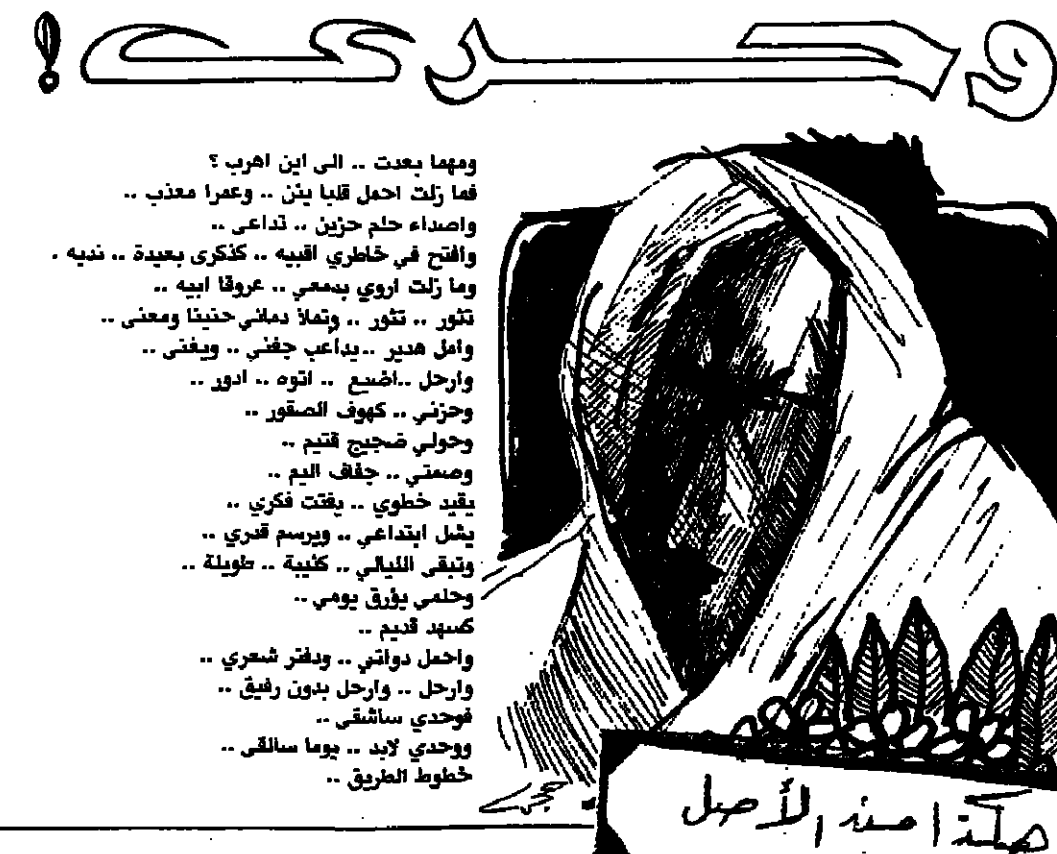 وحدي !
ومهما بعدت .. الى اين اهرب ؟
فما زلت احمل قلبا يئن .. وعمرا معذب ..
واصداء حلم حزين .. تداعى ..
وافتح في خاطري اقبيه .. كذكرى بعيدة .. نديه .
وما زلت اروي بدمعي .. عروقا ابيه ..
تثور .. تثور .. وتملأ دمائي حنينا ومعنى ..
وامل هدير .. يداعب جفني .. ويغنى ..
وارحل .. اضيع .. اتوه .. ادور ..
وحزني .. كهوف الصقور ..
وحولي ضجيج قتيم ..
وصمتي .. جفاف اليم ..
يقيد خطوي .. يفتت فكري ..
يشل ابتداعي .. ويرسم قدري ..
وتبقى الليالي .. كئيبة .. طويلة ..
وحلمي يؤرق يومي ..
كسهد قديم ..
واحمل دواتي .. ودفتر شعري ..
وارحل .. وارحل بدون رفيق ..
فوحدي ساشقى ..
ووحدي لابد .. يوما سالقى ..
خطوط الطريق ..
الأصل